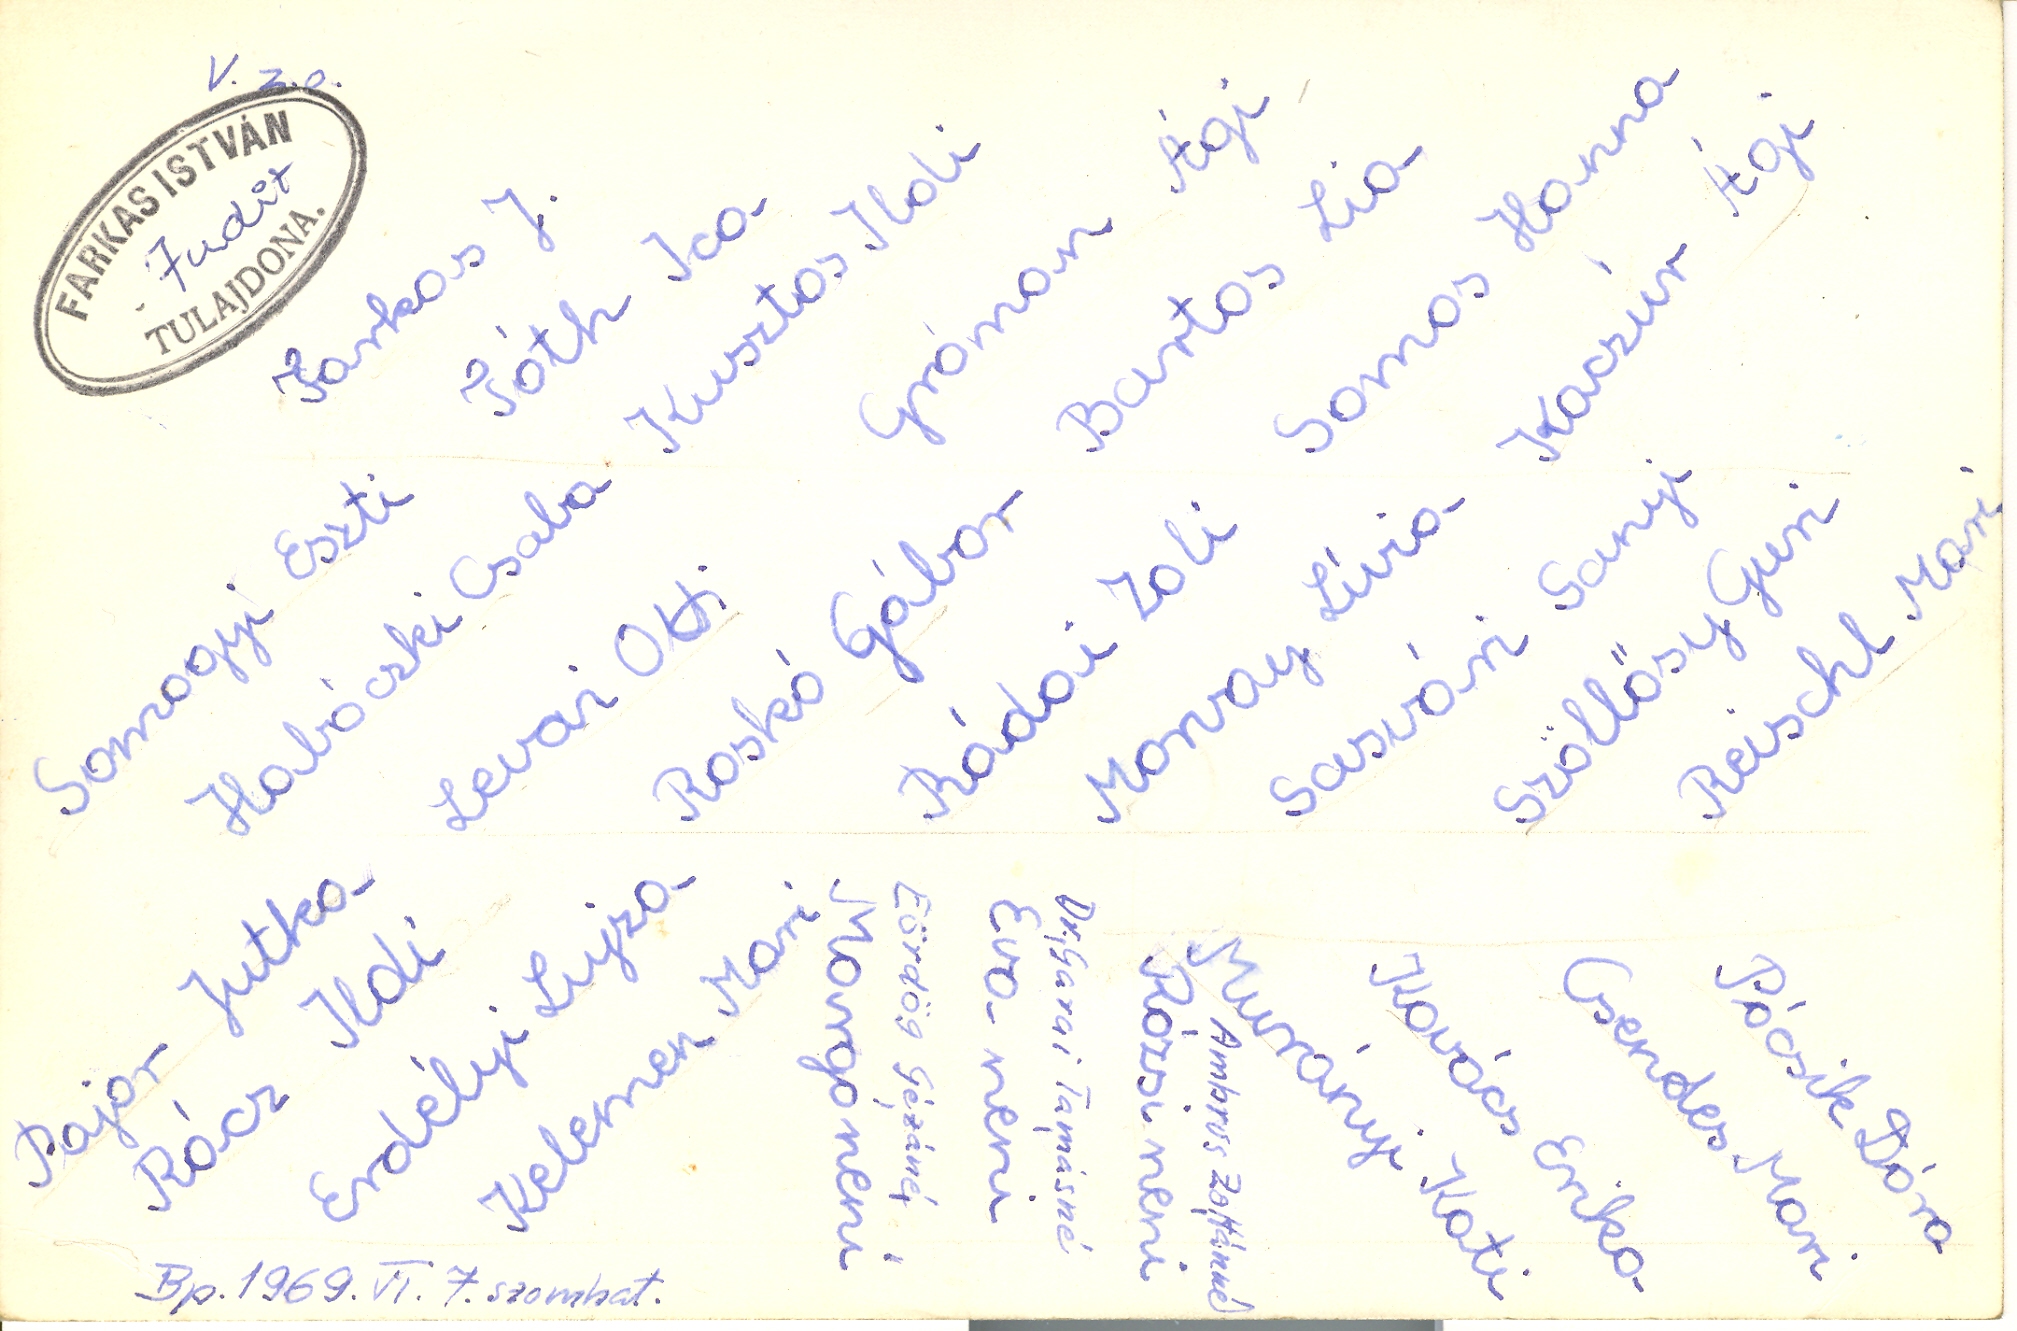 V. z. o.
FARKAS ISTVÁN
Judit
TULAJDONA.
Farkas J.
Tóth Ica
Kusztos Ildi
Gróman Ági
Bartos Lia
Somos Hanna
Kaczúr Ági
Somogyi Eszti
Habóczki Csaba
Levai Otti
Roskó Gábor
Rádai Zoli
Morvay Lívia
Sasvári Sanyi
Szöllősy Guri
Reischl Mari
Pajor Jutka
Rácz Ildi
Erdélyi Lujza
Kelemen Mari
neni
Eördög Gézáné
Eva neni
Dr. Garai Tamásné
Rózsi neni
Ambrus Zoltánné
Murányi Kati
Kovács Erika
Csendes Mari
Pócsik Dóra
Bp. 1969. VI. 7. szombat.